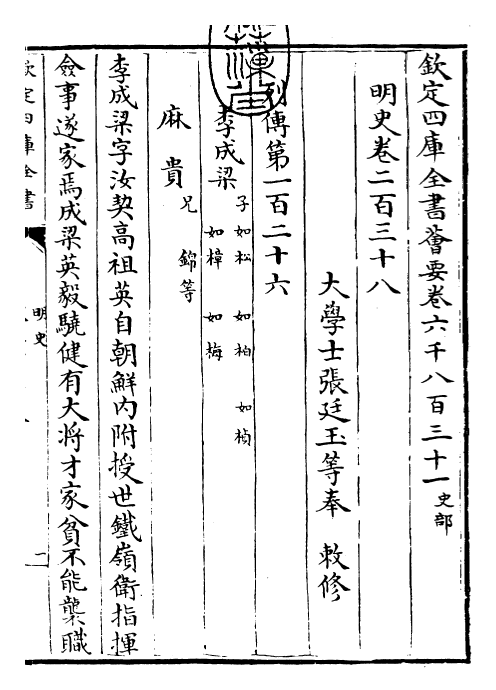 欽定四庫全書薈要卷六千八百三十一史部
明史卷二百三十八
大學士張廷玉等奉 敕修
列傳第一百二十六
李成梁 子如松 如柏 如楨 如樟 如梅
麻貴 兄錦等
李成梁字汝契高祖英自朝鮮內附授世鐵嶺衛指揮
僉事遂家焉成梁英毅驍健有大將才家貧不能襲職
欽定四庫全書
明史